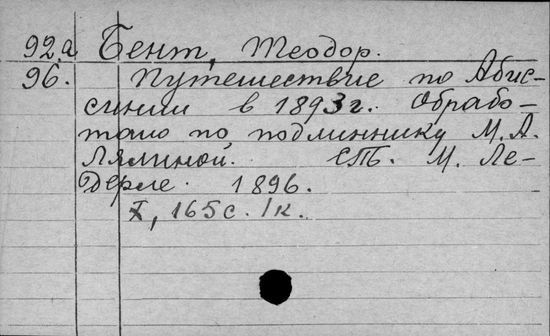 92a Бент, Теодор.
96. Путешествие по Абис-
синии в 1893г. Обрабо-
тано по подлиннику М.А.
Лялиной. СТБ. М. Ле-
дерле. 1896.
X, 165с. 1к.